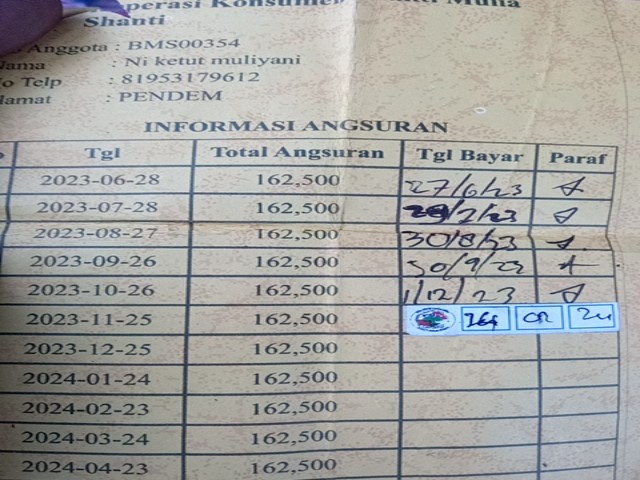 Shanti
Anggota : BMS00354
: Ni ketut muliyani
Telp : 81953179612
: PENDEM
INFORMASI ANGSURAN
Tgl Total Angsuran Tgl Bayar Paraf
2023-06-28 162,500 27/6/23
2023-07-28 162,500
2023-08-27 162,500 30/8/23
2023-09-26 162,500 30/9/23
2023-10-26 162,500 1/12/23
2023-11-25 162,500
2023-12-25 162,500
2024-01-24 162,500
2024-02-23 162,500
2024-03-24 162,500
2024-04-23 162,500